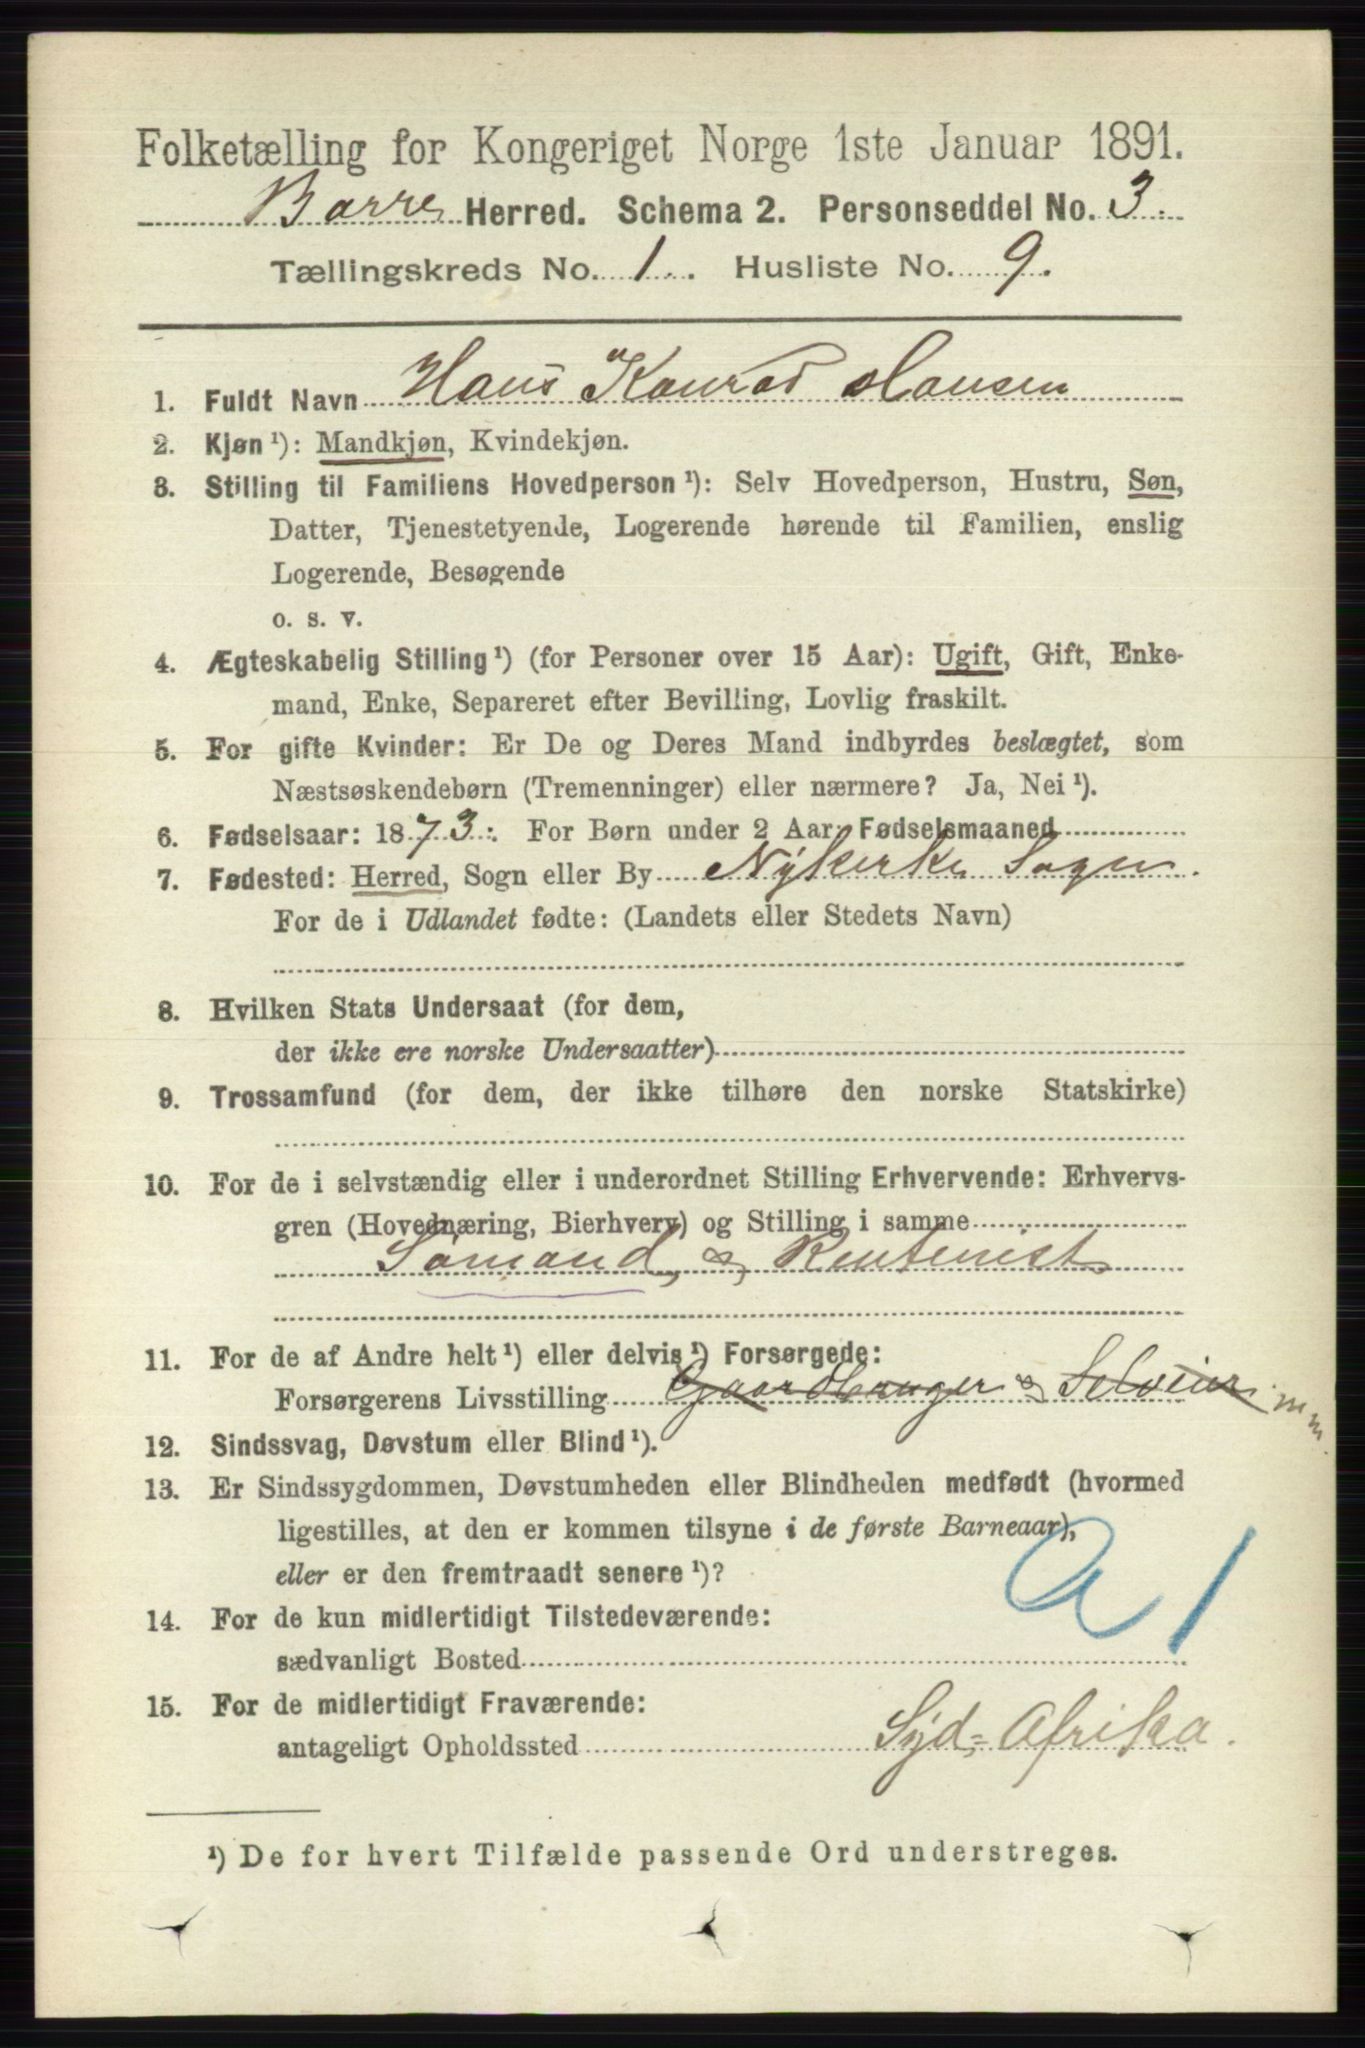 Folketælling for Kongeriget Norge 1ste Januar 1891.
Borre Herred. Schema 2. Personseddel No. 3.
Tællingskreds No. 1. Husliste No. 9.
1. Fuldt Navn Hans Konrad Hansen
2. Kjøn ¹): Mandkjøn, Kvindekjøn.
3. Stilling til Familiens Hovedperson ¹): Selv Hovedperson, Hustru, Søn,
Datter, Tjenestetyende, Logerende hørende til Familien, enslig
Logerende, Besøgende
o. s. v.
4. Ægteskabelig Stilling ¹) (for Personer over 15 Aar): Ugift, Gift, Enke-
mand, Enke, Separeret efter Bevilling, Lovlig fraskilt.
5. For gifte Kvinder: Er De og Deres Mand indbyrdes beslægtet, som
Næstsøskendebørn (Tremenninger) eller nærmere? Ja, Nei ¹).
6. Fødselsaar: 1873. For Børn under 2 Aar: Fødselsmaaned
7. Fødested: Herred, Sogn eller By Nykirke Sogn.
For de i Udlandet fødte: (Landets eller Stedets Navn)
8. Hvilken Stats Undersaat (for dem,
der ikke ere norske Undersaatter)
9. Trossamfund (for dem, der ikke tilhøre den norske Statskirke)
10. For de i selvstændig eller i underordnet Stilling Erhvervende: Erhvervs-
gren (Hovednæring, Bierhverv) og Stilling i samme
Sømand, & Rentenist
11. For de af Andre helt ¹) eller delvis ¹) Forsørgede:
Forsørgerens Livsstilling Gaardbruger & Selveier
12. Sindssvag, Døvstum eller Blind ¹).
13. Er Sindssygdommen, Døvstumheden eller Blindheden medfødt (hvormed
ligestilles, at den er kommen tilsyne i de første Barneaar),
eller er den fremtraadt senere ¹)?
a 1
14. For de kun midlertidigt Tilstedeværende:
sædvanligt Bosted
15. For de midlertidigt Fraværende:
antageligt Opholdssted Syd-Afrika.
¹) De for hvert Tilfælde passende Ord understreges.